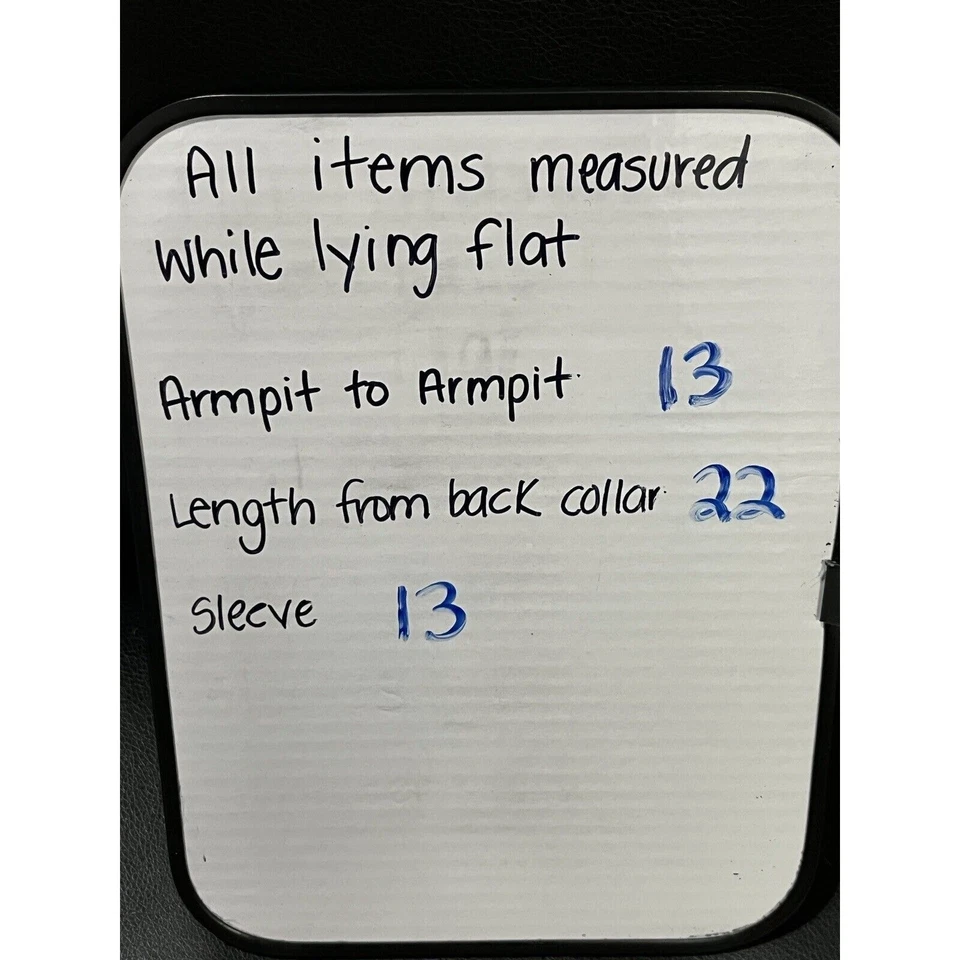 All items measured
while lying flat
Armpit to Armpit 13
Length from back collar 22
Sleeve 13